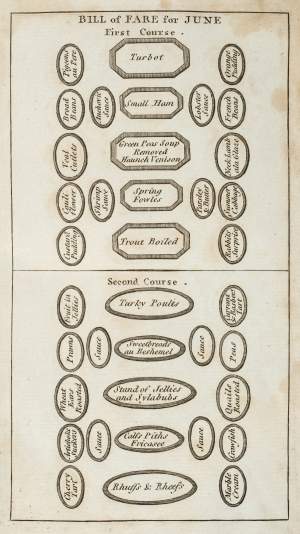 BILL of FARE for JUNE
First Course.
Pigeons
au Pere
Turbot
Orange
Pudding
Broad
Beans
Anchovie
Sauce
Small Ham
Lobster
Sauce
French
Beans
Veal
Cutlets
Green Peas Soup
Removed
Haunch Venison
Neck Lamb
ala Glaze
Cauli
Flower
Shrimp
Sauce
Spring
Fowles
Parsley
& Butter
Summer
Cabbage
Custard
Pudding
Trout Boiled
Rabbits
Surprise
Second Course.
Fruit in
Jellies
Turky Poults
Currant
& Rasberry
Tart
Prawns
Sauce
Sweetbreads
au Beshemel
Sauce
Peas
Wheat
Ears
Roasted
Stand of Jellies
and Sylabubs
Quails
Roasted
Artichoke
Suckers
Sauce
Calfs Piths
Fricasee
Sauce
Crawfish
Cherry
Tart
Rhuffs & Rheefs
Marble
Cream